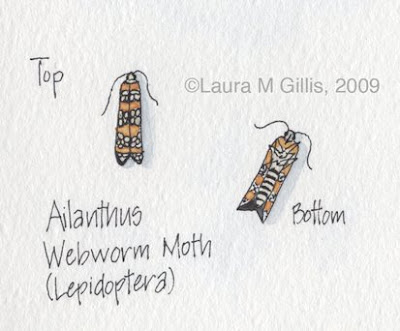 Top
©Laura M Gillis, 2009
Ailanthus
Webworm Moth
(Lepidoptera)
Bottom